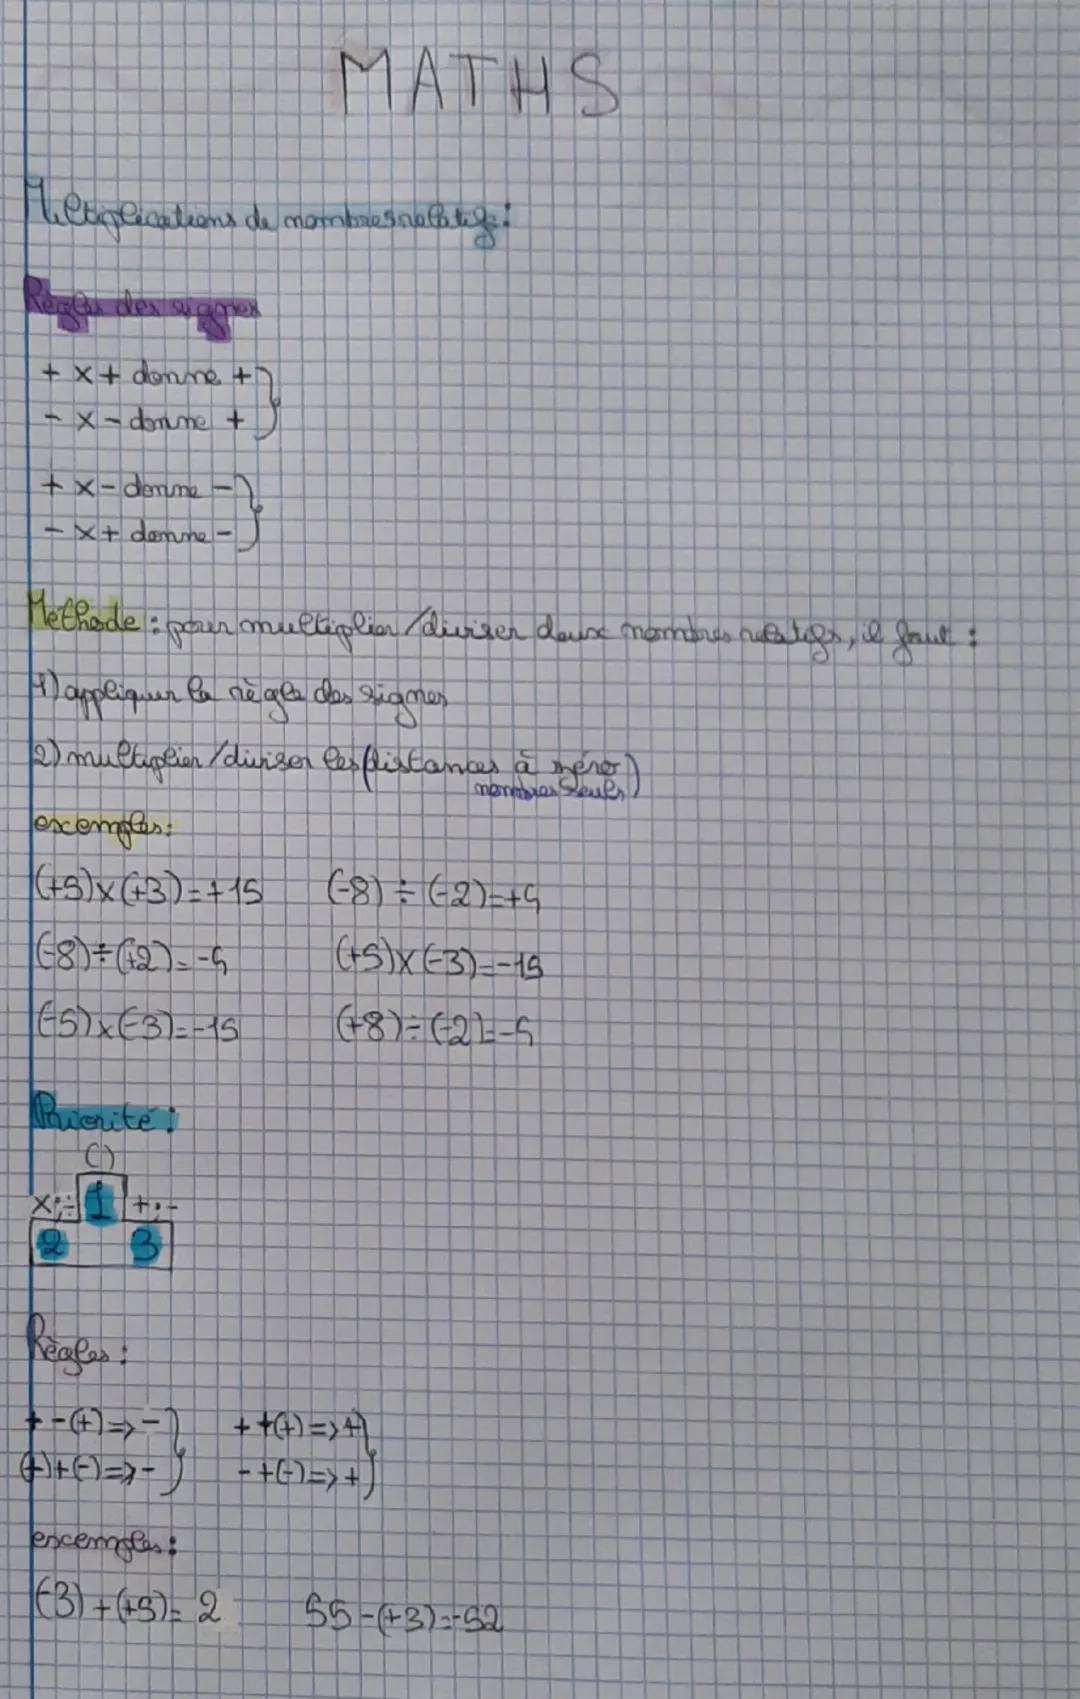 MATHS
Multiplications de nombres relatifs :
Règles des signes
+ x + donne +
- x - donne +
+ x - donne -
- x + donne -
Méthode : pour multiplier/diviser deux nombres relatifs, il faut :
1) appliquer la règle des signes
2) multiplier/diviser les (distances à zéro)
nombres seuls
exemples :
(+5)x(+3)=+15 (-8)÷(-2)=+4
(-8)÷(+2)=-4 (+5)x(-3)=-15
(-5)x(-3)=-15 (+8)÷(-2)=-4
Priorité :
()
x;÷ 1 +;-
2 3
Règles :
+ -(+)=>- + +(+)=>+
(+)+(-)=>- - +(-)=>+
exemples :
(-3)+(+5)= 2 55-(+3)=-52